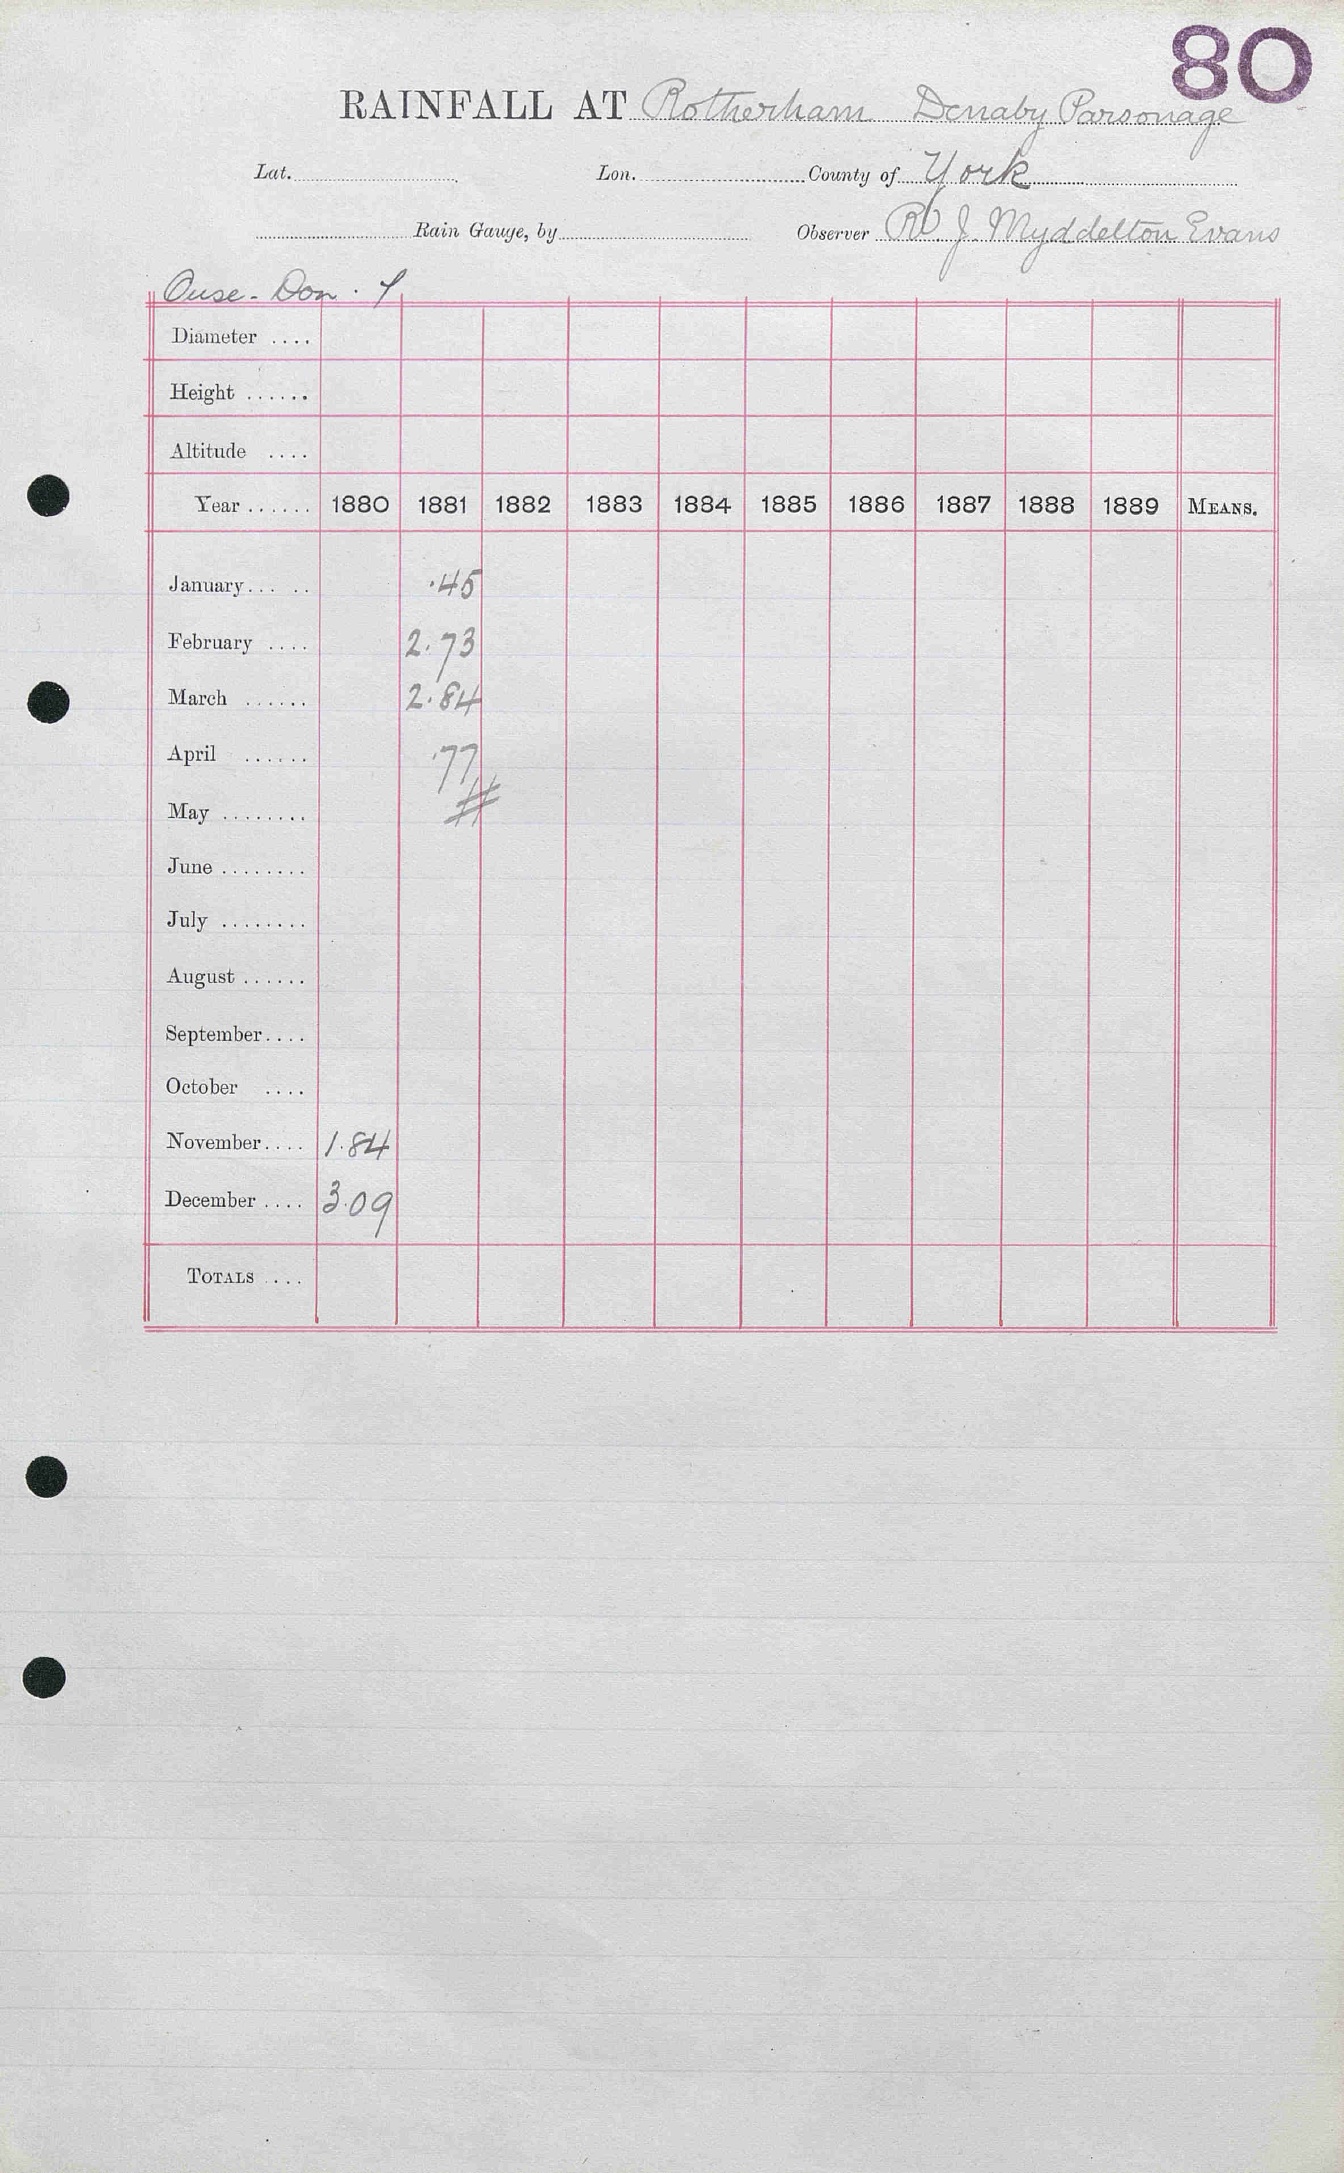 80
RAINFALL AT Rotherham Denaby Parsonage
Lat. Lon. County of York
Rain Gauge, by Observer J. Myddelton Evans
Ouse - Don .
Diameter ....
Height ......
Altitude ....
Year ...... 1880 1881 1882 1883 1884 1885 1886 1887 1888 1889 MEANS.
January... .. .45
February .... 2.73
March ...... 2.84
April ...... .77
May ........
June ........
July ........
August ......
September....
October ....
November.... 1.84
December .... 3.09
TOTALS ....